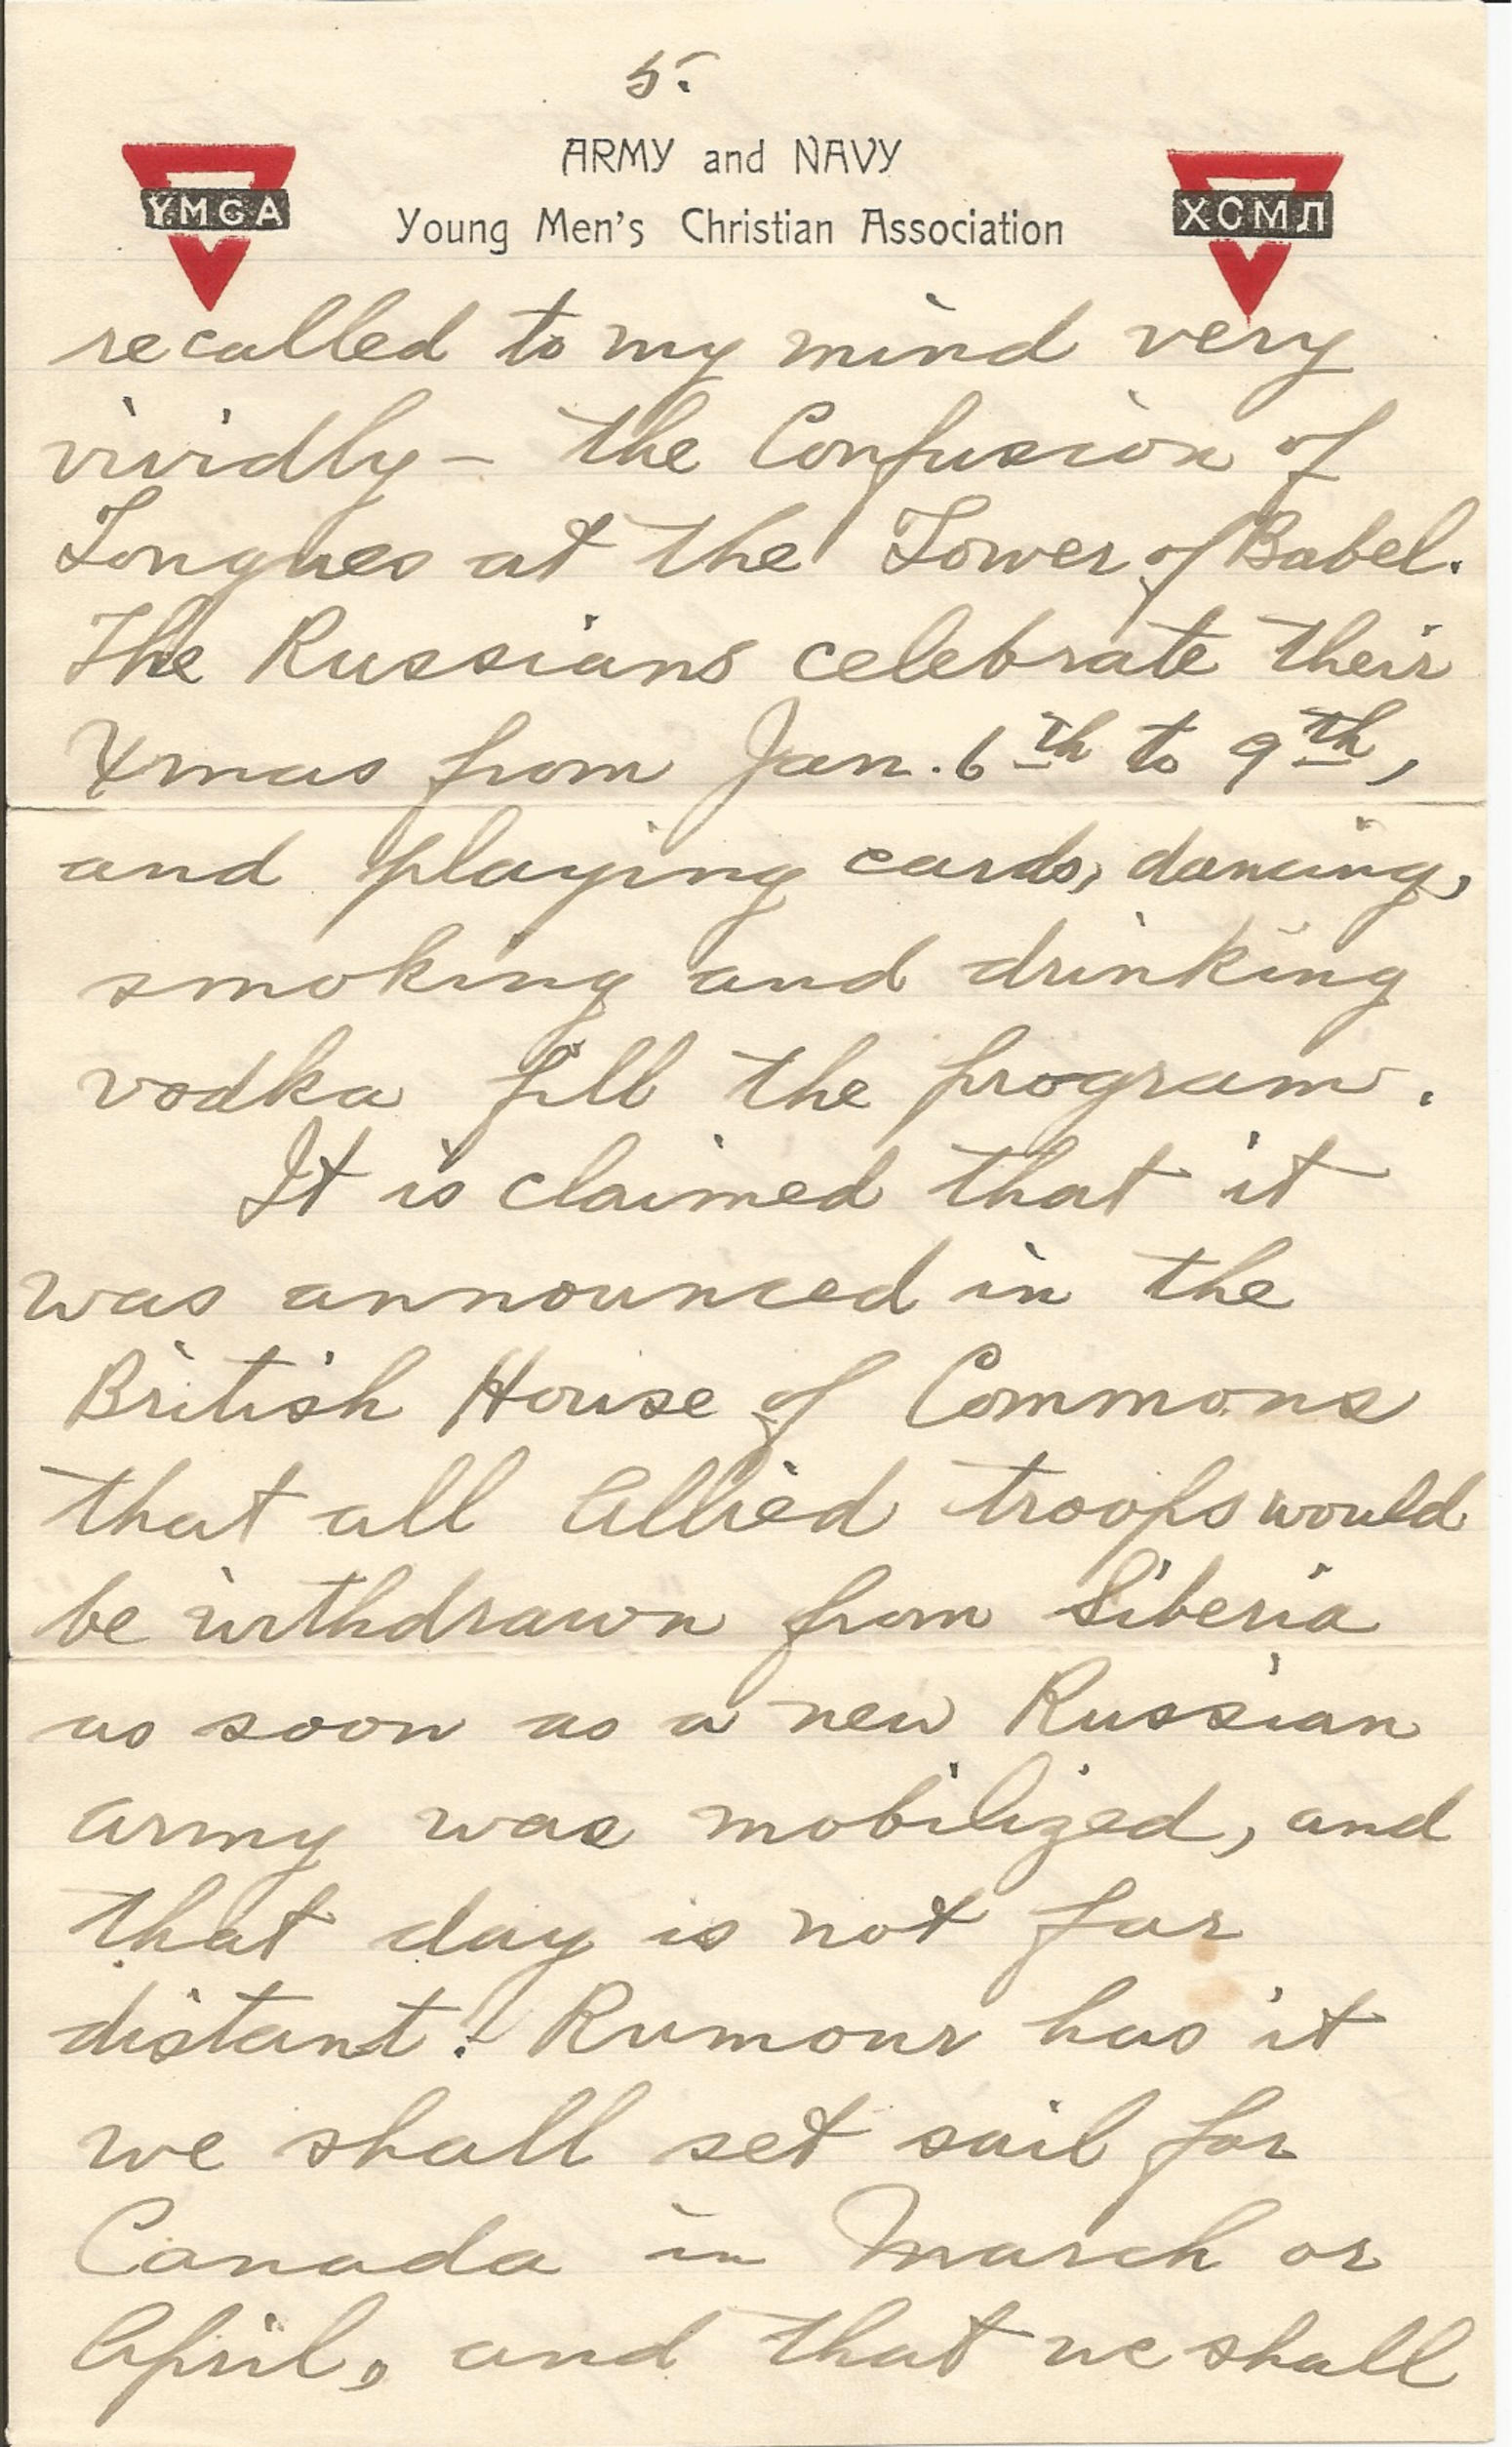 5.
ARMY and NAVY
YMCA
Young Men's Christian Association
ХСМЛ
recalled to my mind very
vividly – the Confusion of
Tongues at the Tower of Babel.
The Russians celebrate their
Xmas from Jan. 6th to 9th,
and playing cards, dancing,
smoking and drinking
vodka fill the program.
It is claimed that it
was announced in the
British House of Commons
that all Allied troops would
be withdrawn from Siberia
as soon as a new Russian
army was mobilized, and
that day is not far
distant! Rumour has it
we shall set sail for
Canada in March or
April, and that we shall